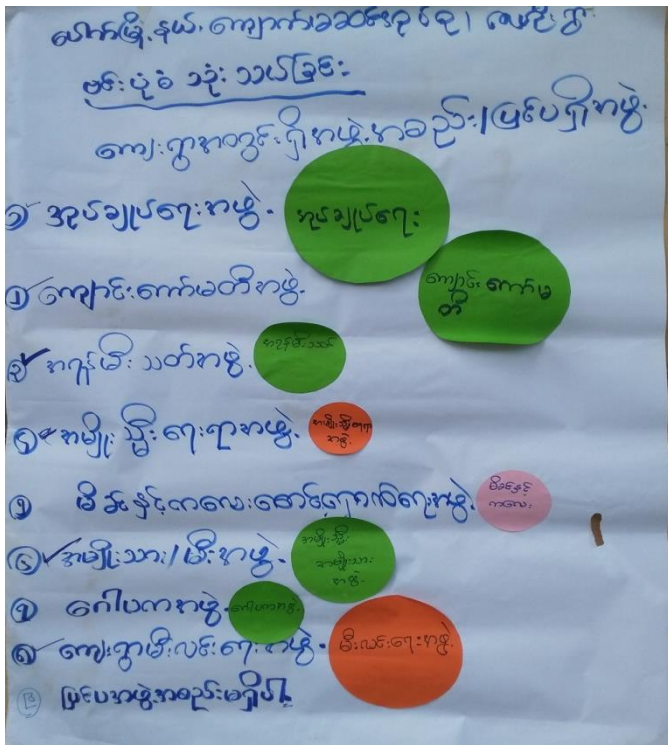 ပေါက်မြို့နယ်၊ ကျောက်ခဆင်းအုပ်စု၊ ရွာ
ဗင်းပုံစံ သုံးသပ်ခြင်း
ကျေးရွာအတွင်းရှိအဖွဲ့အစည်း/ပြင်ပရှိအဖွဲ့
၁ အုပ်ချုပ်ရေးအဖွဲ့
အုပ်ချုပ်ရေး
၂ ကျောင်းကော်မတီအဖွဲ့
ကျောင်းကော်မတီ
၃ အရန်မီးသတ်အဖွဲ့
အရန်မီးသတ်
၄ အမျိုးသ္မီးရေးရာအဖွဲ့
အမျိုးသ္မီးရေးရာအဖွဲ့
၅ မိခင်နှင့်ကလေးစောင့်ရှောက်ရေးအဖွဲ့
မိခင်နှင့်ကလေး
၆ အမျိုးသား/မီးအဖွဲ့
အမျိုးသ္မီး အမျိုးသားအဖွဲ့
၇ ဂေါပကအဖွဲ့
ဂေါပကအဖွဲ့
၈ ကျေးရွာမီးလင်းရေးအဖွဲ့
မီးလင်းရေးအဖွဲ့
B ပြင်ပအဖွဲ့အစည်းမရှိပါ